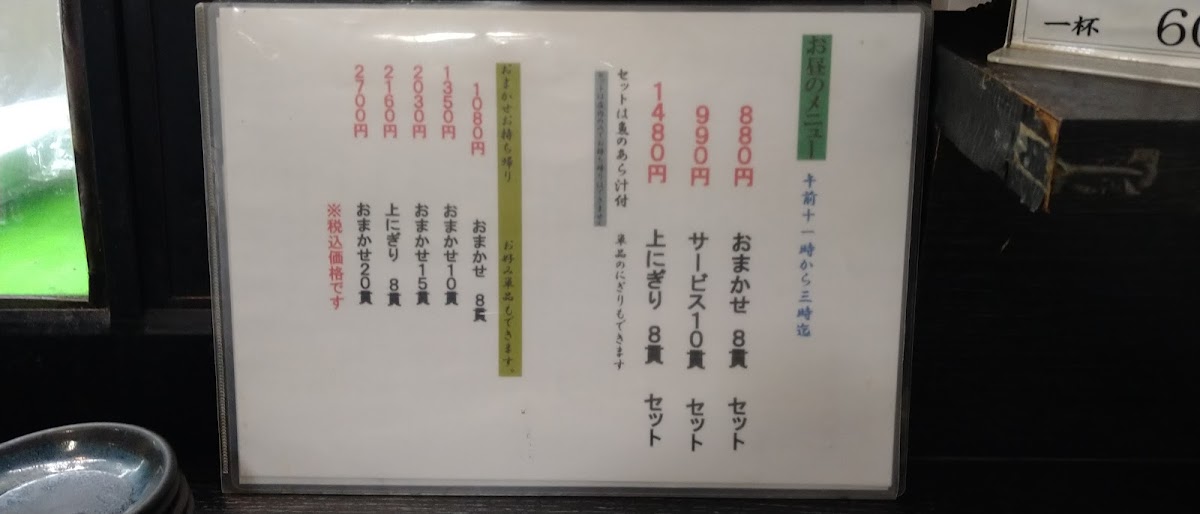 一杯
お昼のメニュー 午前十一時から三時迄
880円 おまかせ 8貫 セット
990円 サービス10貫 セット
1480円 上にぎり 8貫 セット
セットは魚のあら汁付 単品のにぎりもできます
おまかせお持ち帰り お好み単品もできます。
1080円 おまかせ 8貫
1350円 おまかせ10貫
2030円 おまかせ15貫
2160円 上にぎり 8貫
2700円 おまかせ20貫
※税込価格です